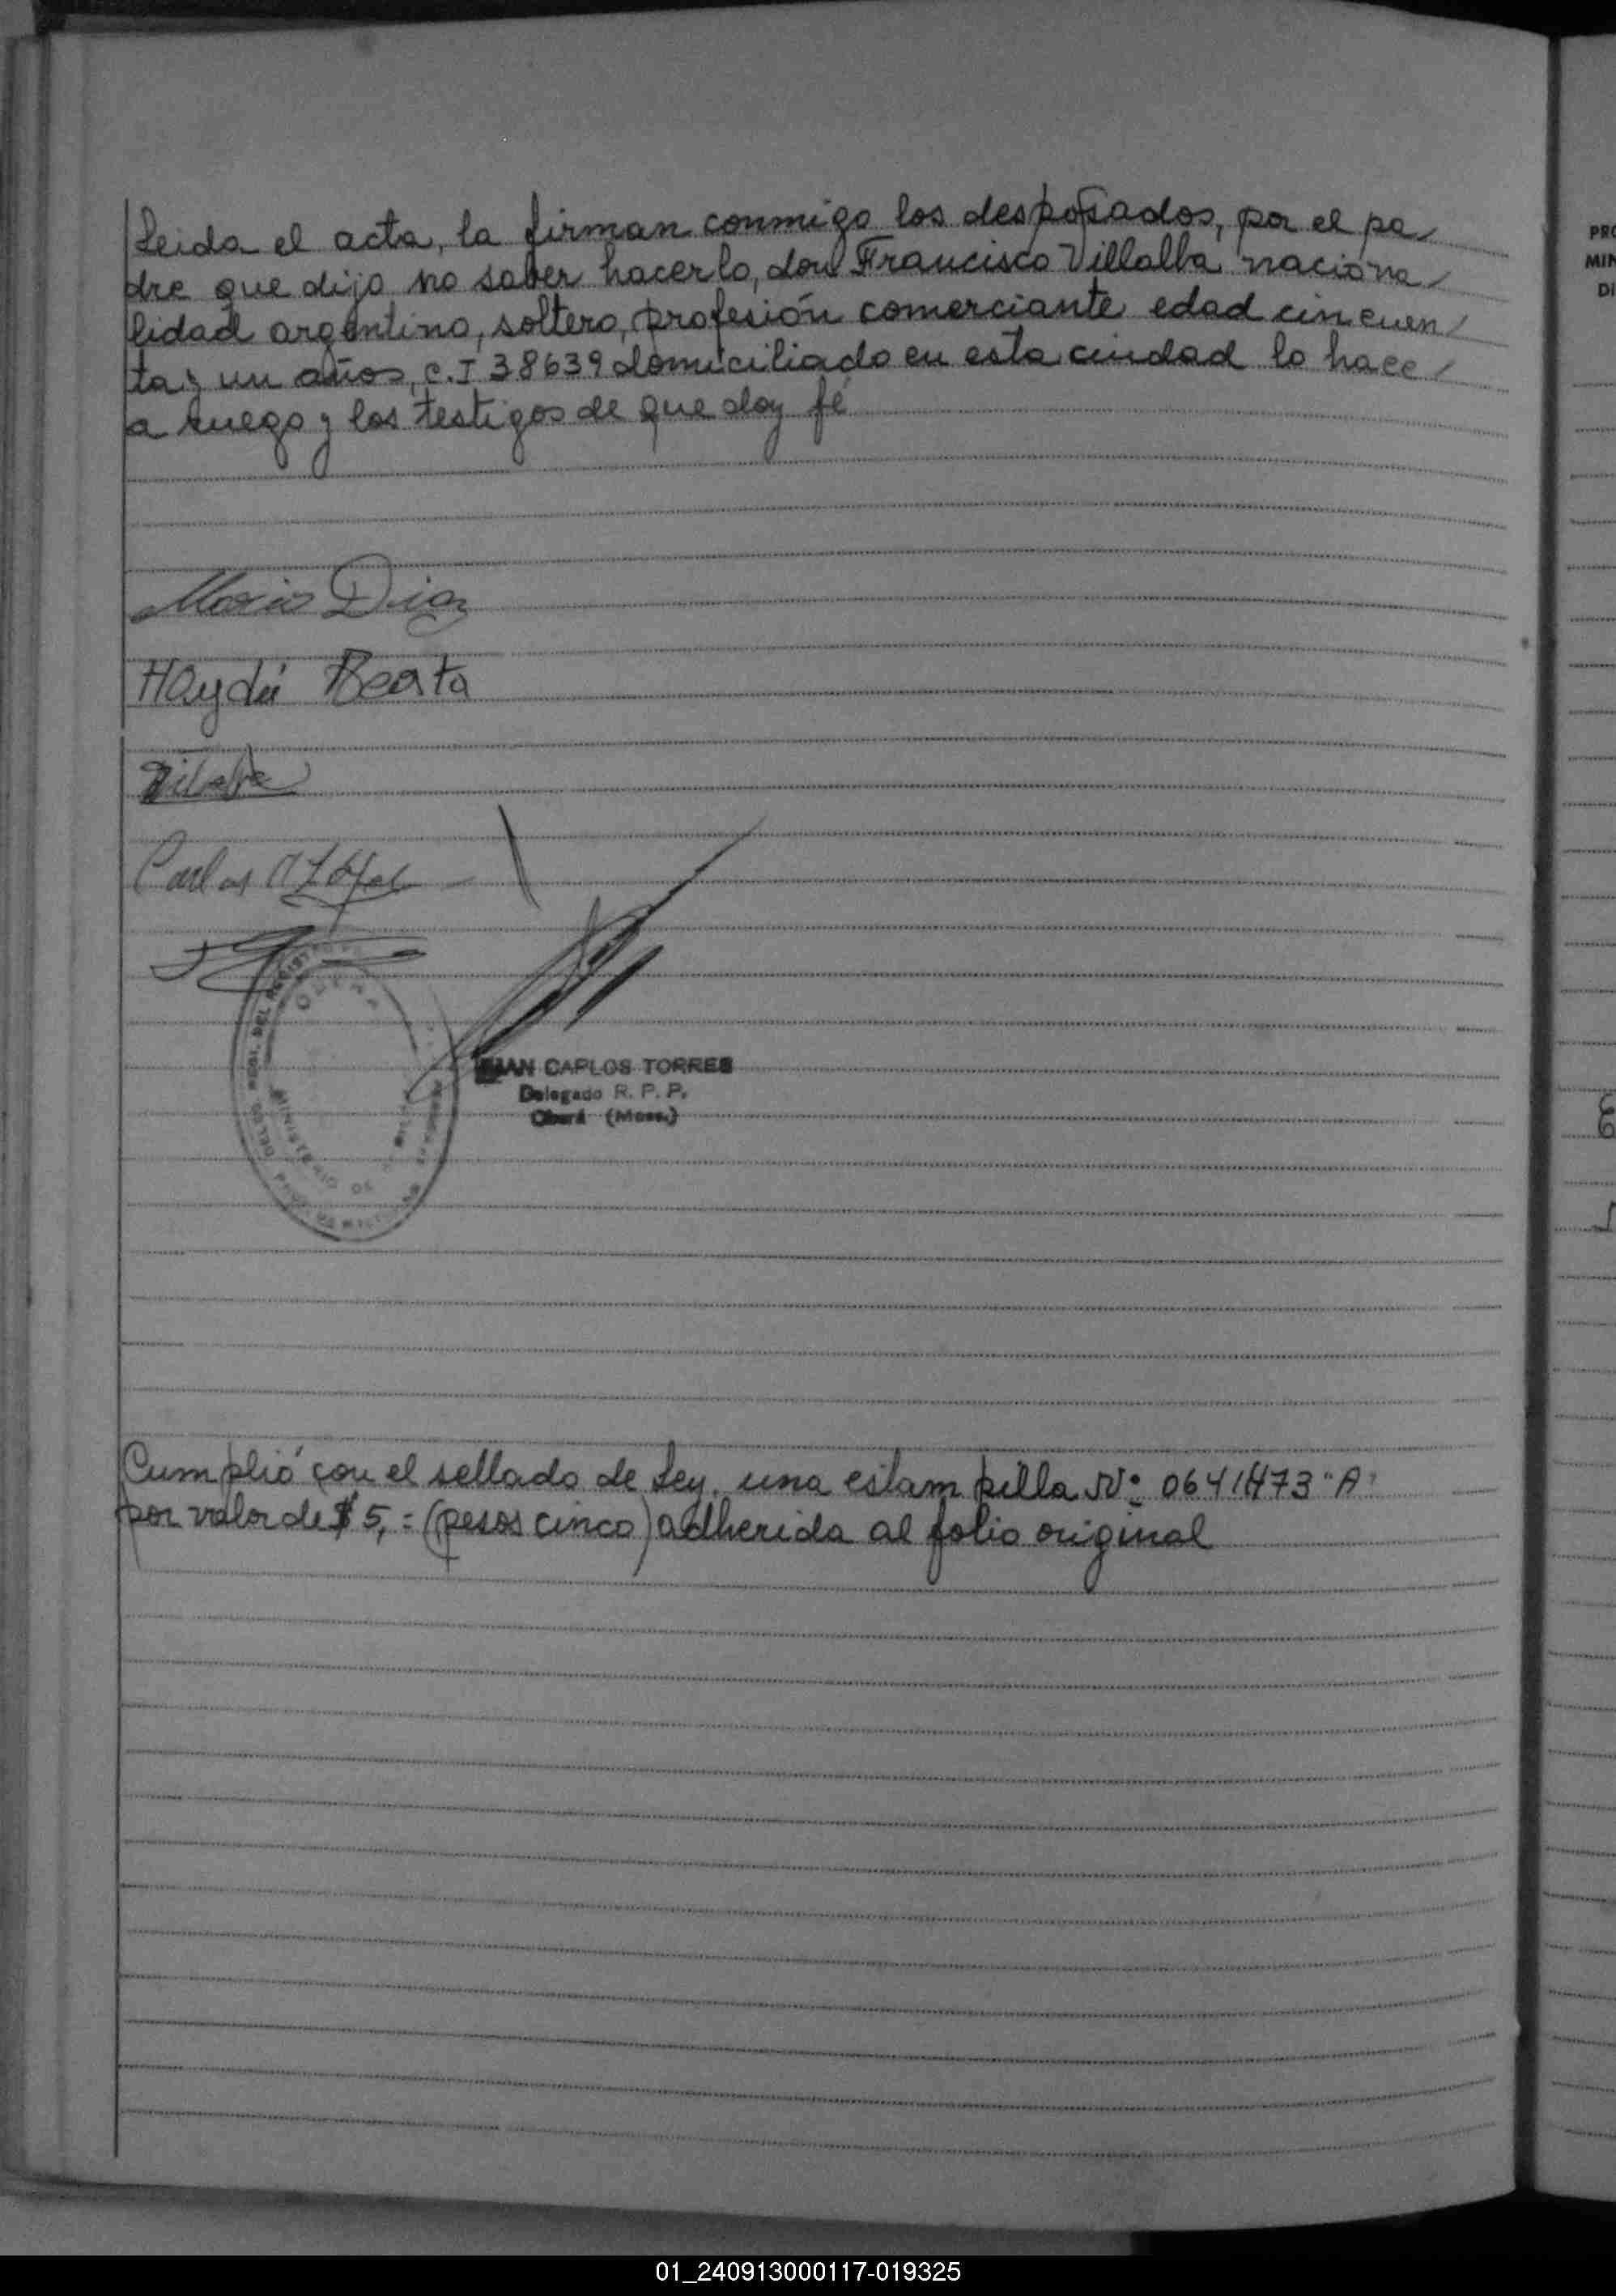 Leida el acta, la firman conmigo los desposados, por el pa
dre que dijo no saber hacerlo, don Francisco Villalba naciona
lidad argentino, soltero, profesión comerciante edad cincuen
ta y un años, C.I 38639 domiciliado en esta ciudad lo hace
a ruego y los testigos de que doy fé
Mario Diaz
Haydeé Beata
Carlos
REGISTRO
MINISTERIO DE
JUAN CARLOS TORRES
Delegado R. P. P.
Oberá (Mnes.)
Cumplió con el sellado de Ley, una estampilla Nº 0641473 "A"
por valor de $ 5,= (pesos cinco) adherida al folio original
PRO
MIN
DI
01_240913000117-019325